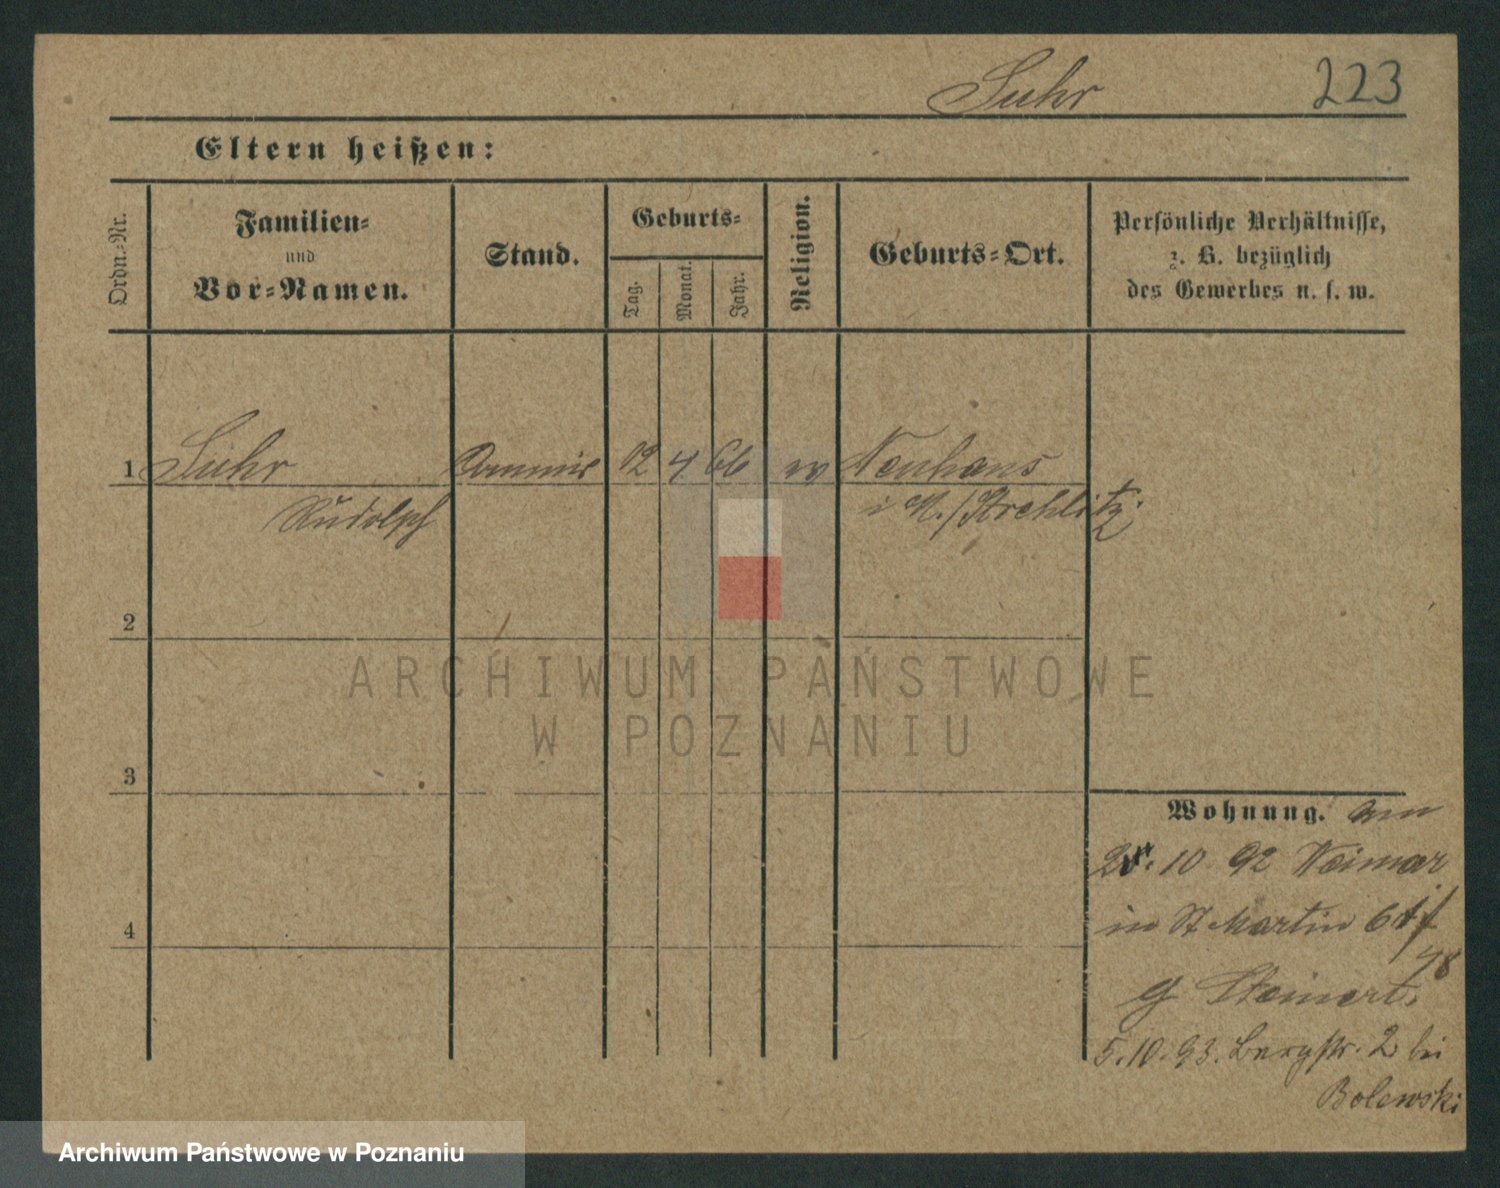 Suhr 223
Eltern heißen:
Ordn.-Nr.
Familien-
und
Vor-Namen.
Stand.
Geburts-
Tag.
Monat.
Jahr.
Religion.
Geburts-Ort.
Persönliche Verhältnisse,
z. B. bezüglich
des Gewerbes u. s. w.
1 Suhr Commis 12 4 66 ev Neuhaus
Rudolph i M./Strehlitz
2
3
4
Wohnung.
10 92 Weimar
in St Martin
48
Steinert
5.10.93. Bergstr. 2 bei
Bolewski
ARCHIWUM PAŃSTWOWE
W POZNANIU
Archiwum Państwowe w Poznaniu